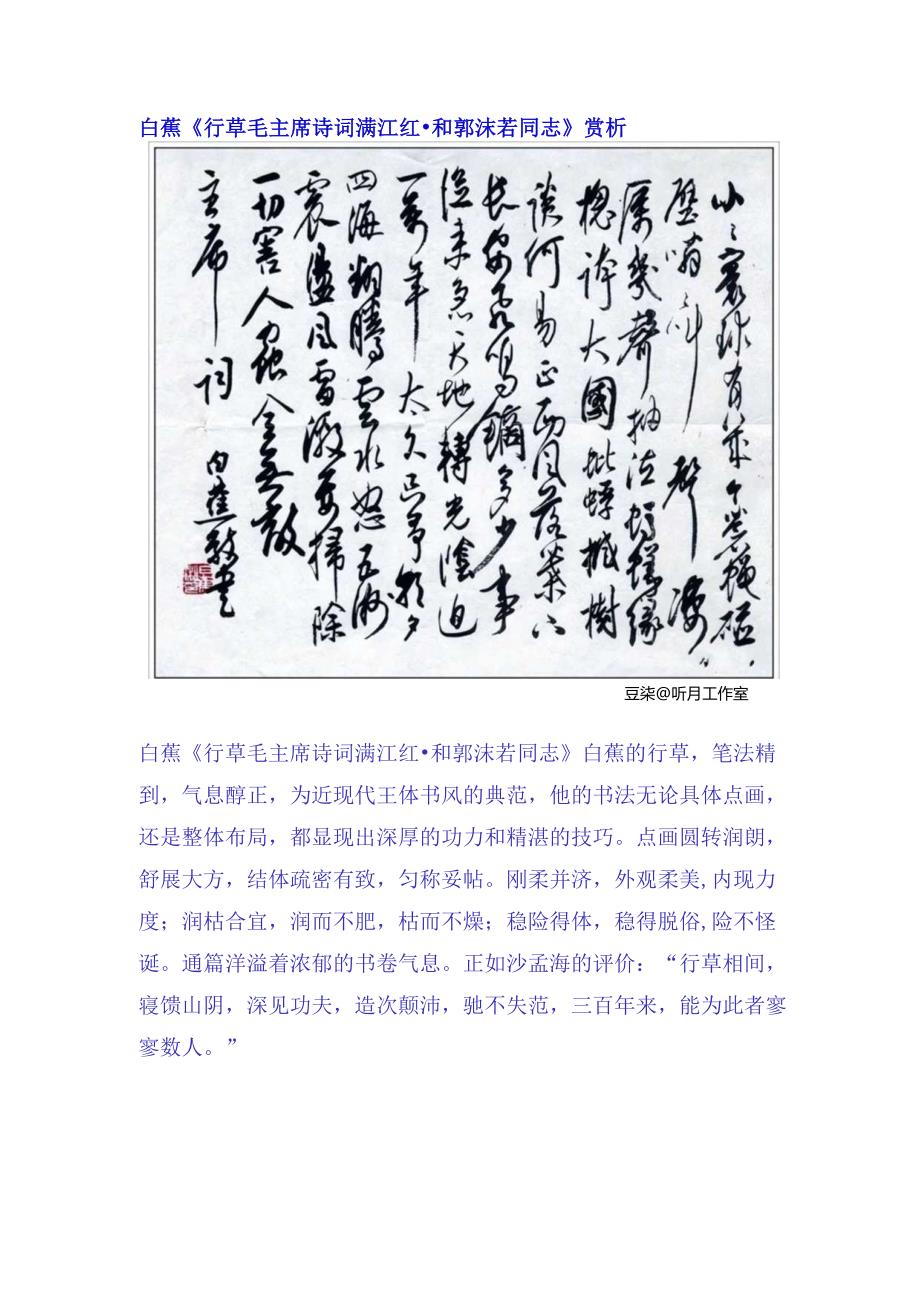 白蕉《行草毛主席诗词满江红•和郭沫若同志》赏析
小〻寰球有幾个蒼蝇碰
壁嗡〻叫聲凄
厲幾聲抽泣螞蟻緣
槐誇大國蚍蜉撼樹
談何易正西風落葉下
長安飛鳴鏑多少事
從来急天地轉光陰迫
一萬年太久只争朝夕
四海翻騰雲水怒五洲
震盪風雷激要掃除
一切害人虫全無敵
主席詞 白蕉敬書
豆柒@听月工作室
白蕉《行草毛主席诗词满江红•和郭沫若同志》白蕉的行草，笔法精
到，气息醇正，为近现代王体书风的典范，他的书法无论具体点画，
还是整体布局，都显现出深厚的功力和精湛的技巧。点画圆转润朗，
舒展大方，结体疏密有致，匀称妥帖。刚柔并济，外观柔美,内现力
度；润枯合宜，润而不肥，枯而不燥；稳险得体，稳得脱俗,险不怪
诞。通篇洋溢着浓郁的书卷气息。正如沙孟海的评价：“行草相间，
寝馈山阴，深见功夫，造次颠沛，驰不失范，三百年来，能为此者寥
寥数人。”